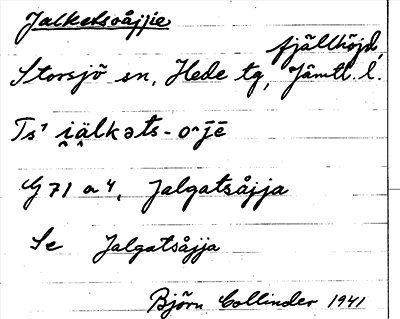 Jalketsoåjjie
fjällhöjd,
Storsjö sn, Hede tg, Jämtl. l.
Ts¹ i̯ä̯lkəts-o·j̄ē
G 71 a 4, Jalgatsåjja
Se Jalgatsåjja
Björn Collinder 1941